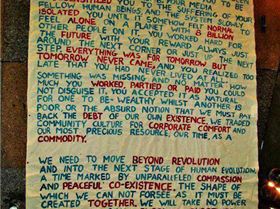 FELLOW HUMAN BEINGS TO BE
ISOLATED YOU UNTIL IT SLOWLY
FEEL ALONE SYSTEM FELT NORMAL TO
OTHER PEOPLE ON A PLANET WITH 8 BILLION
THE FUTURE YOU WORKED HARD FOR
AROUND THE NEXT YOUR REWARD ALWAYS JUST
STEP EVERYTHING WAS FOR TOMORROW BUT
TOMORROW NEVER CAME. AND
LATE THAT YOU HAD NEVER LIVED AT ALL TOO
SOMETHING WAS MISSING AND NO MATTER HOW
MUCH YOU WORKED PARTIED OR PAID YOU COULD
NOT DISGUISE IT. YOU ACCEPTED IT AS NATURAL
FOR ONE TO BE WEALTHY WHILST ANOTHER IS
POOR, OR THE ABSURD NOTION THAT WE MUST PAY
BACK THE DEBT OF OUR OWN EXISTENCE. WE TRADED
COMMUNITY CULTURE FOR CORPORATE COMFORT AND
OUR MOST PRECIOUS RESOURCE, OUR TIME, AS A
COMMODITY.
WE NEED TO MOVE BEYOND REVOLUTION
AND INTO THE NEXT STAGE OF HUMAN EVOLUTION,
A TIME MARKED BY UNPARALLELED COMPASSION
AND PEACEFUL CO-EXISTENCE. THE SHAPE OF
WHICH WE CAN NOT FORSEE AS IT MUST BE
CREATED TOGETHER. WE WILL TAKE NO POWER